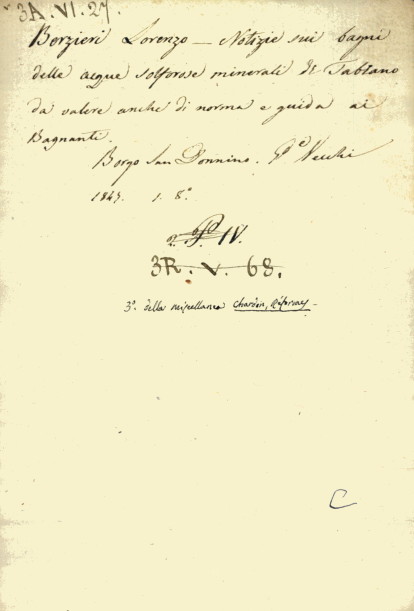 3A.VI.27.
Berzieri Lorenzo — Notizie sui bagni
delle acque solforose minerali di Tabiano
da valere anche di norma e guida ai
Bagnanti.
Borgo San Donnino. Vecchi
1847. 1. 8.º
IV.
3R. V. 68.
3º. della miscellanea
C